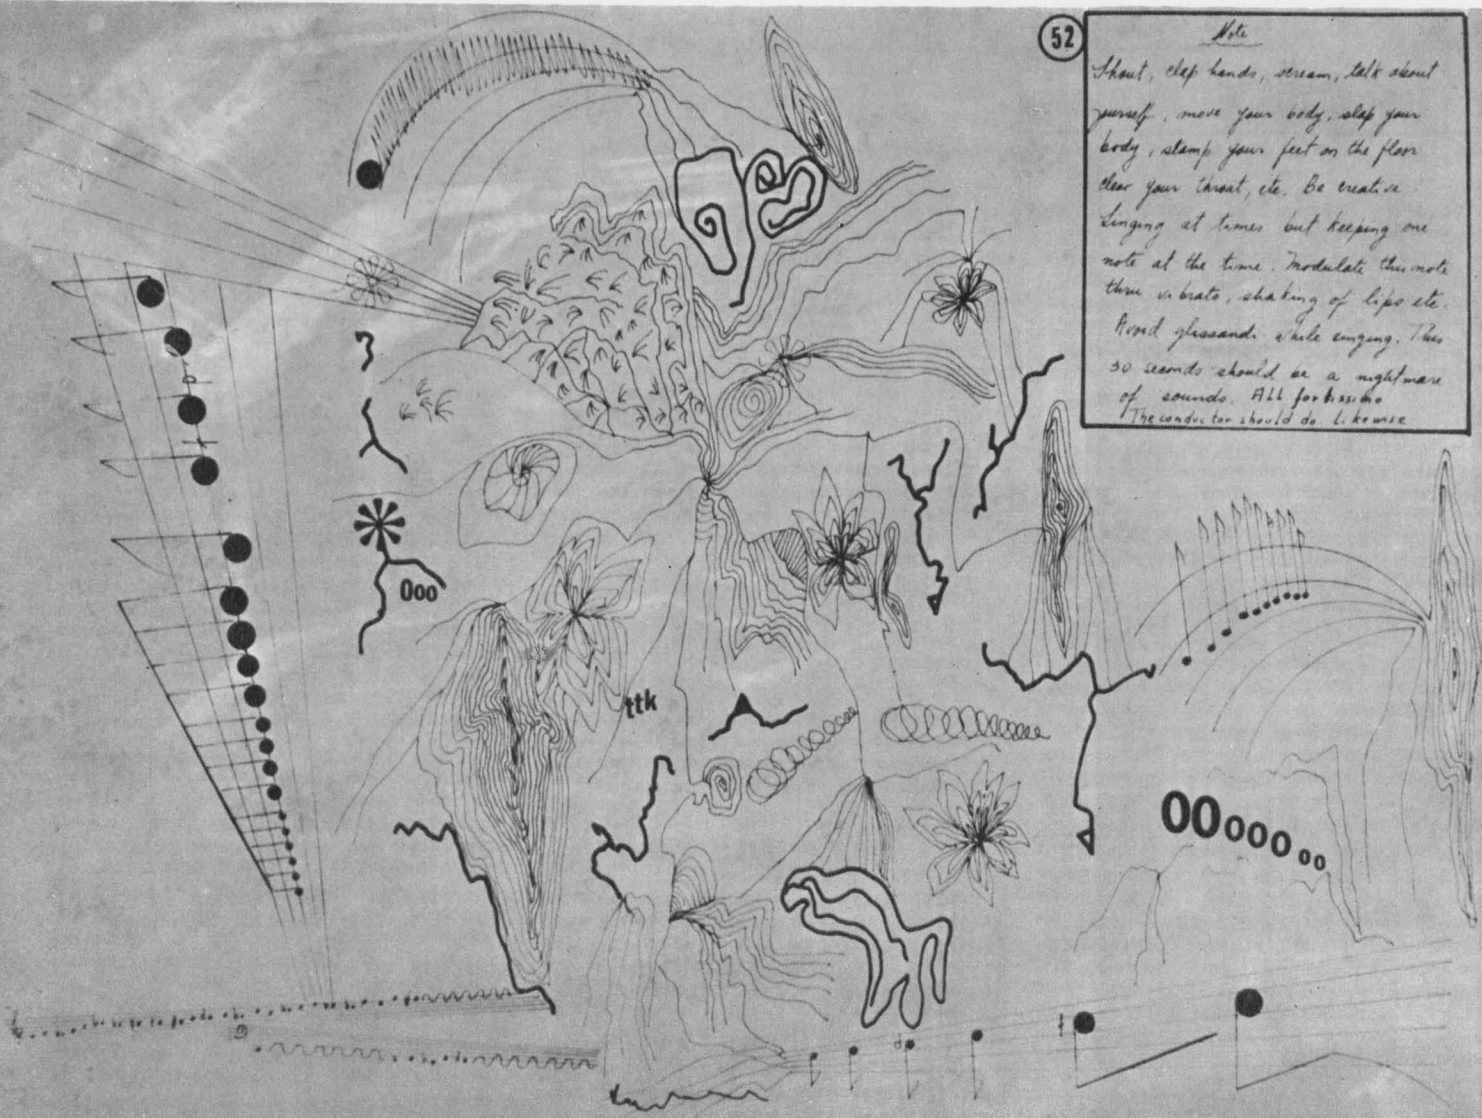 52
Note
Shout, clap hands, scream, talk about
yourself, move your body, slap your
body, stamp your feet on the floor
clear your throat, etc. Be creative
Singing at times but keeping one
note at the time. Modulate this note
thru vibrato, shaking of lips etc.
Avoid glissandi while singing. This
30 seconds should be a nightmare
of sounds. All fortissimo
The conductor should do likewise
Ooo
ttk
OOoooooo